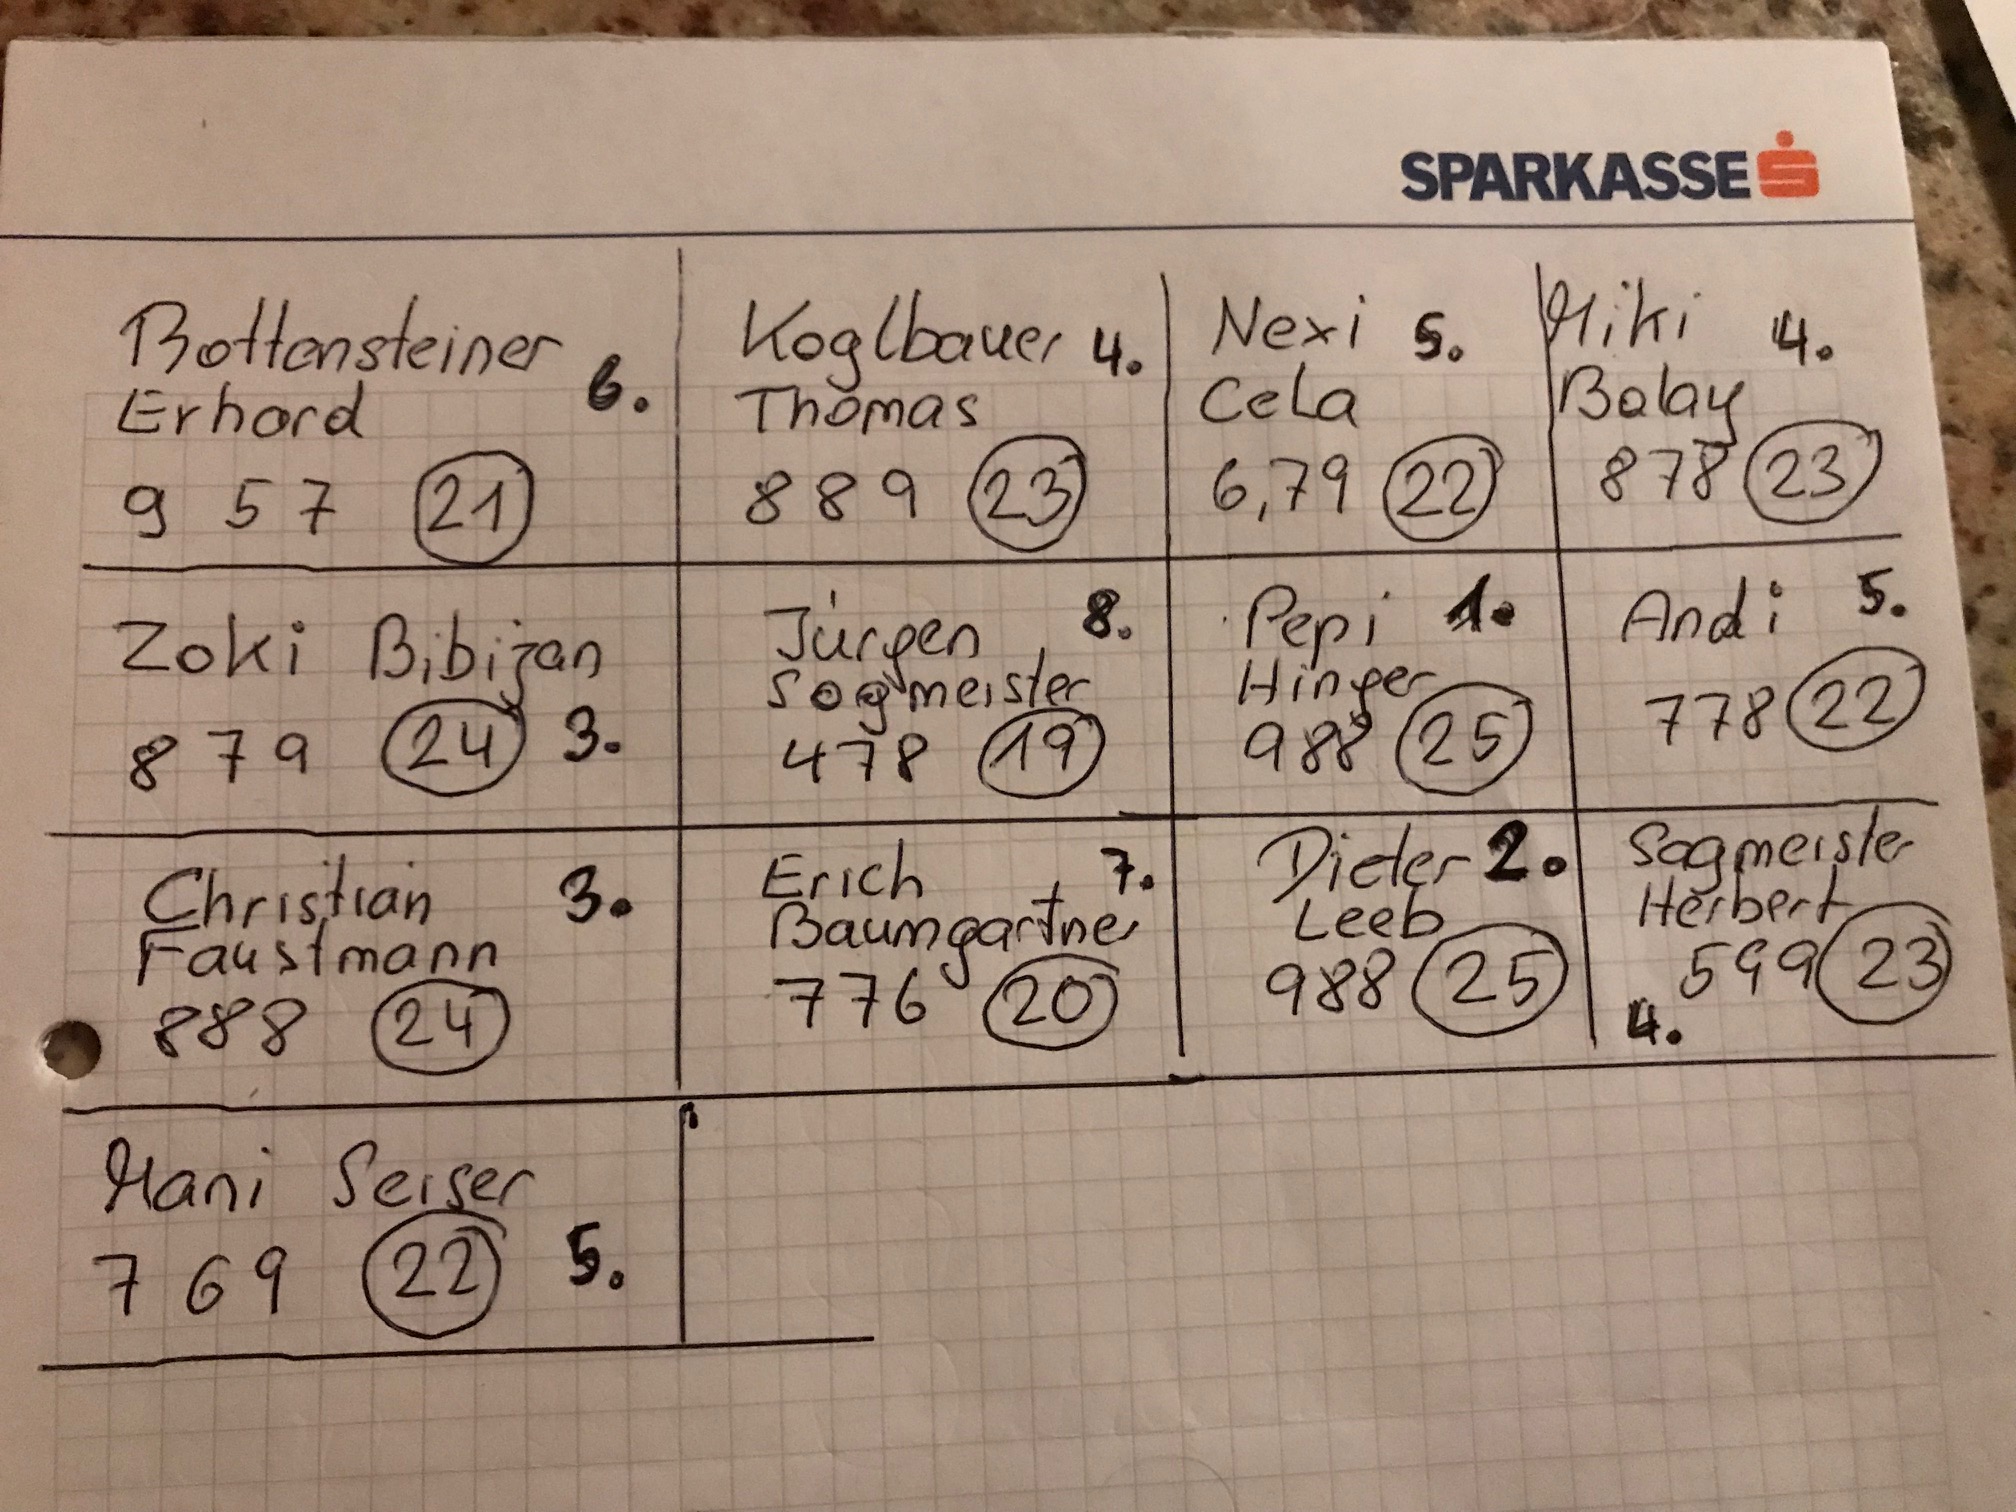 SPARKASSE
Bottensteiner
Erhard 6.
9 5 7 21
Koglbauer 4.
Thomas
8 8 9 23
Nexi 5.
Cela
6,79 22
Miki 4.
Balay
878 23
Zoki Bibijan
8 7 9 24 3.
Jürgen 8.
Sogmeister
478 19
Pepi 1.
Hinger
988 25
Andi 5.
778 22
Christian 3.
Faustmann
888 24
Erich 7.
Baumgartner
776 20
Dieter 2.
Leeb
988 25
Sagmeister
Herbert
599 23
4.
Mani Seiser
7 6 9 22 5.